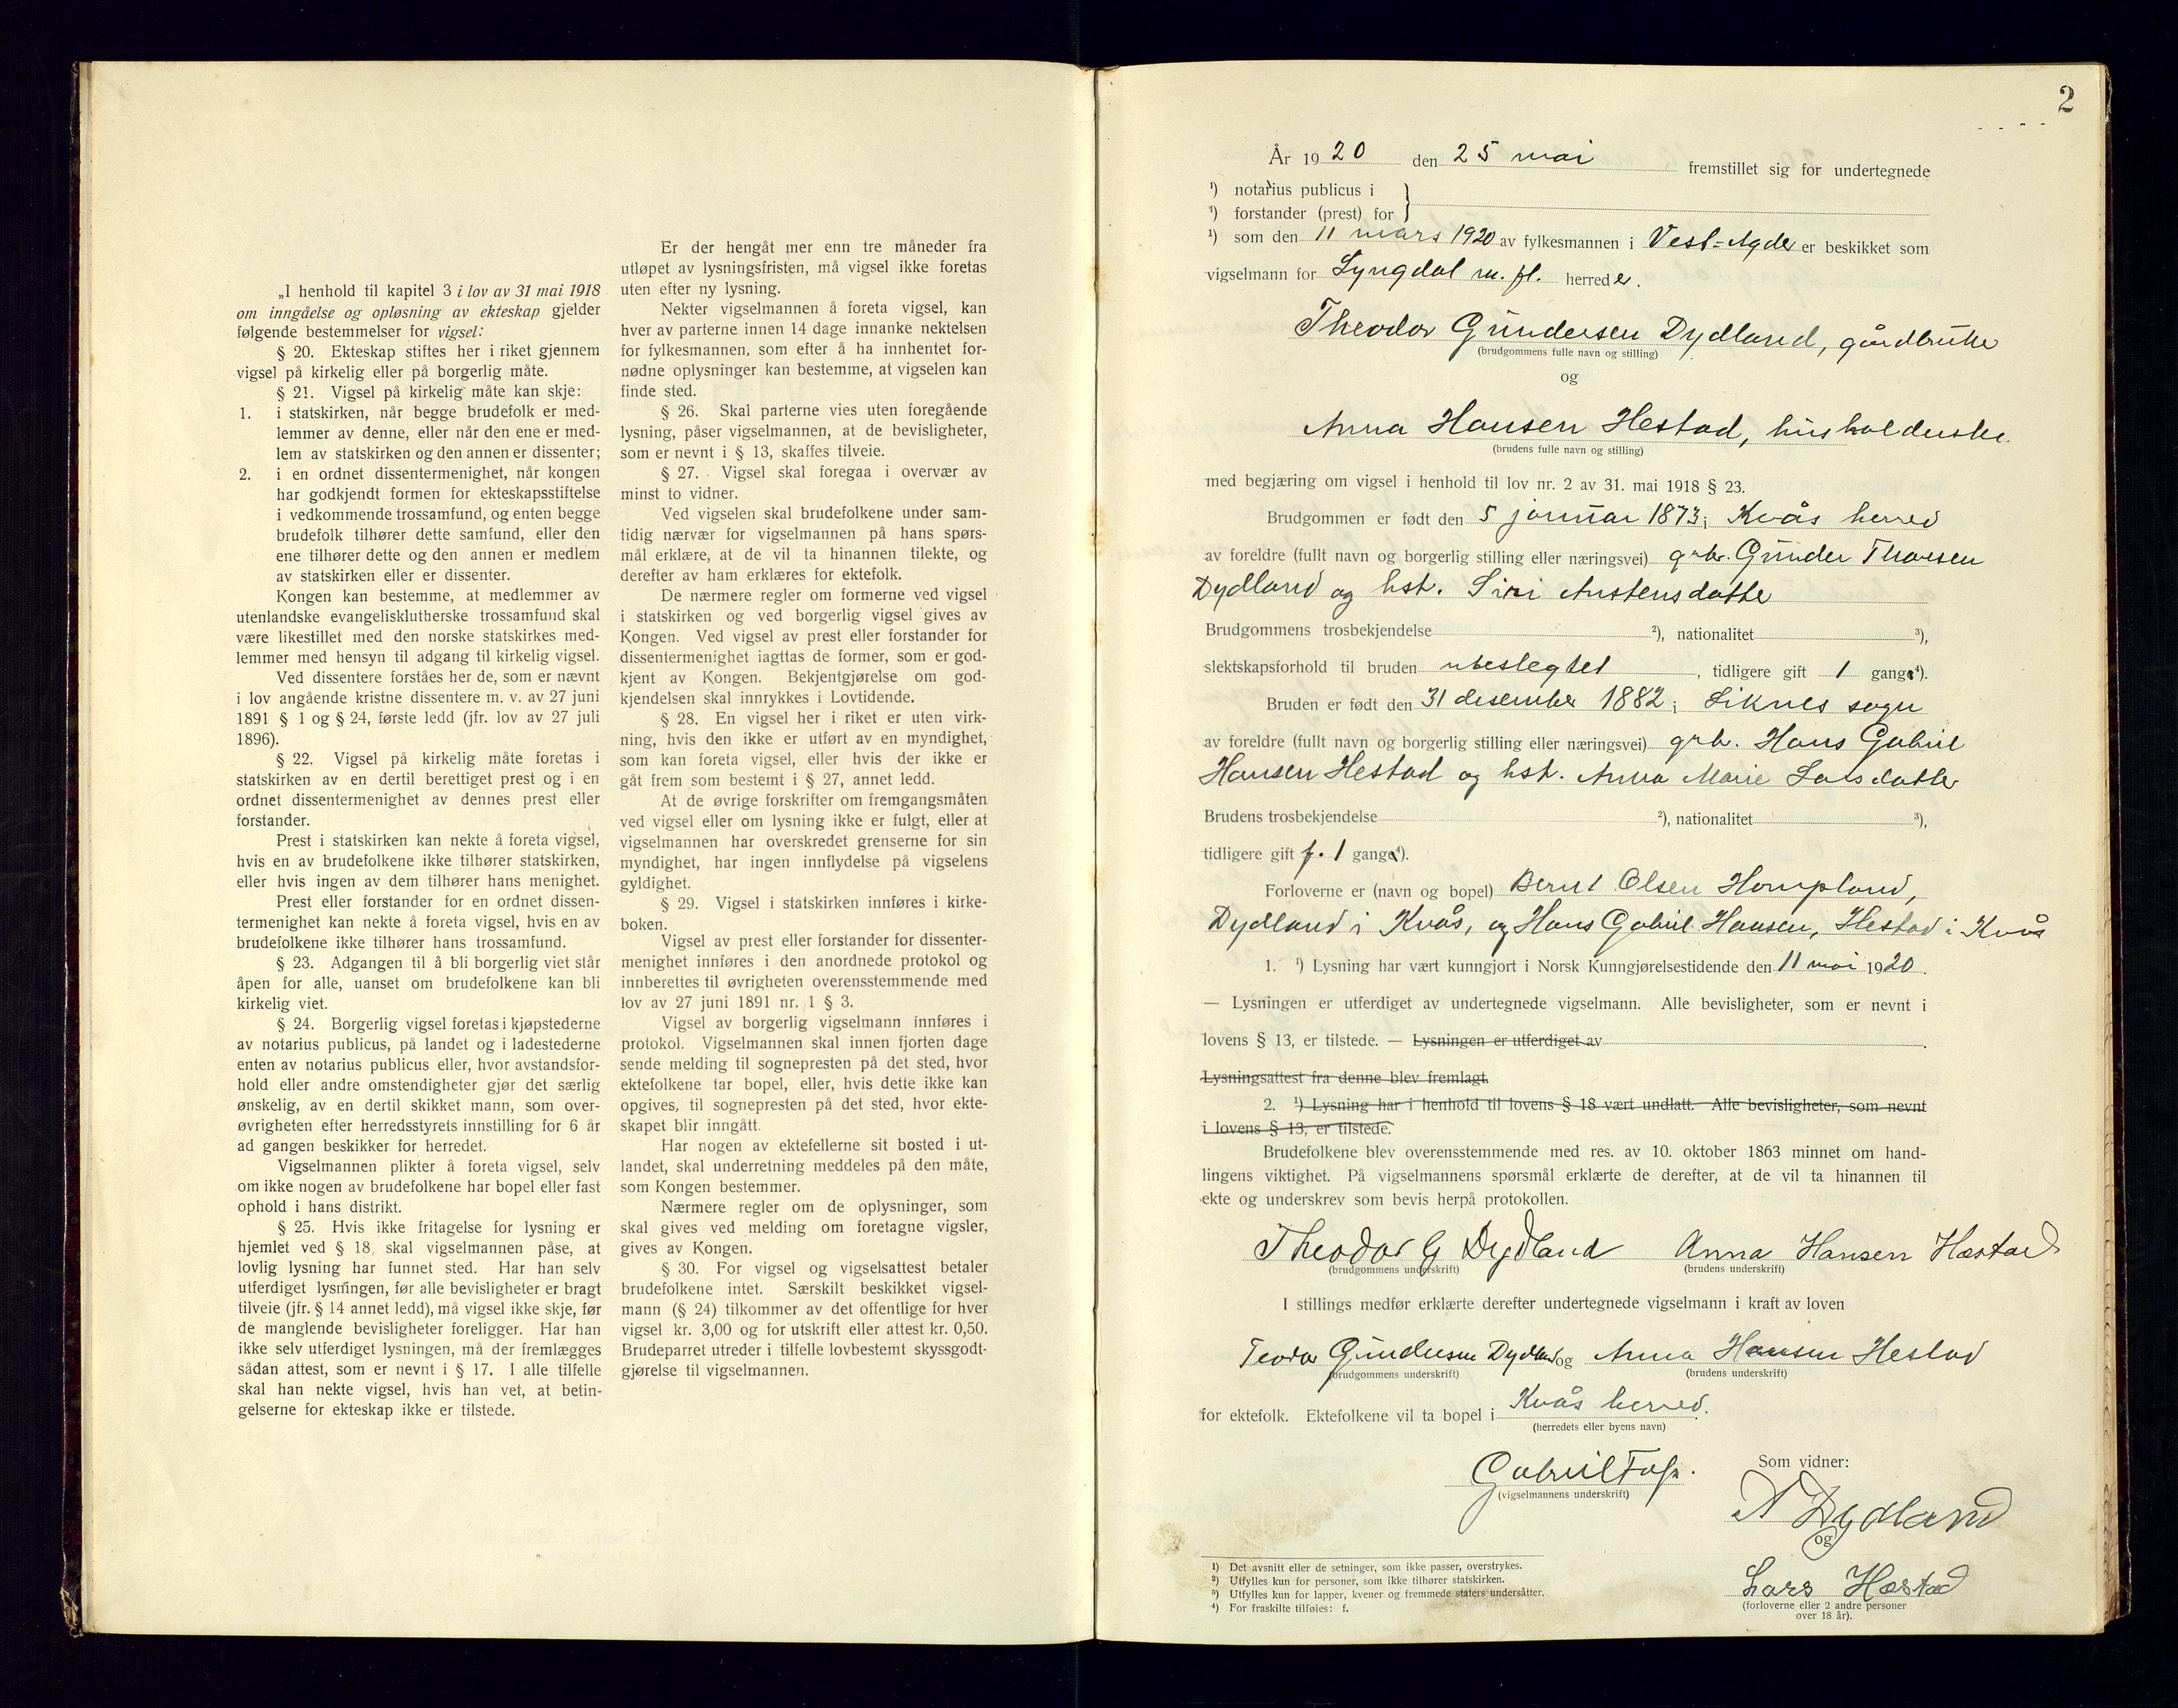 „I henhold til kapitel 3 i lov av 31 mai 1918
om inngåelse og opløsning av ekteskap gjelder
følgende bestemmelser for vigsel:
§ 20. Ekteskap stiftes her i riket gjennem
vigsel på kirkelig eller på borgerlig måte.
§ 21. Vigsel på kirkelig måte kan skje:
1. i statskirken, når begge brudefolk er med-
lemmer av denne, eller når den ene er med-
lem av statskirken og den annen er dissenter;
2. i en ordnet dissentermenighet, når kongen
har godkjendt formen for ekteskapsstiftelse
i vedkommende trossamfund, og enten begge
brudefolk tilhører dette samfund, eller den
ene tilhører dette og den annen er medlem
av statskirken eller er dissenter.
Kongen kan bestemme, at medlemmer av
utenlandske evangelisklutherske trossamfund skal
være likestillet med den norske statskirkes med-
lemmer med hensyn til adgang til kirkelig vigsel.
Ved dissentere forståes her de, som er nævnt
i lov angående kristne dissentere m. v. av 27 juni
1891 § 1 og § 24, første ledd (jfr. lov av 27 juli
1896).
§ 22. Vigsel på kirkelig måte foretas i
statskirken av en dertil berettiget prest og i en
ordnet dissentermenighet av dennes prest eller
forstander.
Prest i statskirken kan nekte å foreta vigsel,
hvis en av brudefolkene ikke tilhører statskirken,
eller hvis ingen av dem tilhører hans menighet.
Prest eller forstander for en ordnet dissen-
termenighet kan nekte å foreta vigsel, hvis en av
brudefolkene ikke tilhører hans trossamfund.
§ 23. Adgangen til å bli borgerlig viet står
åpen for alle, uanset om brudefolkene kan bli
kirkelig viet.
§ 24. Borgerlig vigsel foretas i kjøpstederne
av notarius publicus, på landet og i ladestederne
enten av notarius publicus eller, hvor avstandsfor-
hold eller andre omstendigheter gjør det særlig
ønskelig, av en dertil skikket mann, som over-
øvrigheten efter herredsstyrets innstilling for 6 år
ad gangen beskikker for herredet.
Vigselmannen plikter å foreta vigsel, selv
om ikke nogen av brudefolkene har bopel eller fast
ophold i hans distrikt.
§ 25. Hvis ikke fritagelse for lysning er
hjemlet ved § 18, skal vigselmannen påse, at
lovlig lysning har funnet sted. Har han selv
utferdiget lysningen, før alle bevisligheter er bragt
tilveie (jfr. § 14 annet ledd), må vigsel ikke skje, før
de manglende bevisligheter foreligger. Har han
ikke selv utferdiget lysningen, må der fremlægges
sådan attest, som er nevnt i § 17. I alle tilfelle
skal han nekte vigsel, hvis han vet, at betin-
gelserne for ekteskap ikke er tilstede.
Er der hengåt mer enn tre måneder fra
utløpet av lysningsfristen, må vigsel ikke foretas
uten efter ny lysning.
Nekter vigselmannen å foreta vigsel, kan
hver av parterne innen 14 dage innanke nektelsen
for fylkesmannen, som efter å ha innhentet for-
nødne oplysninger kan bestemme, at vigselen kan
finde sted.
§ 26. Skal parterne vies uten foregående
lysning, påser vigselmannen, at de bevisligheter,
som er nevnt i § 13, skaffes tilveie.
§ 27. Vigsel skal foregaa i overvær av
minst to vidner.
Ved vigselen skal brudefolkene under sam-
tidig nærvær for vigselmannen på hans spørs-
mål erklære, at de vil ta hinannen tilekte, og
derefter av ham erklæres for ektefolk.
De nærmere regler om formerne ved vigsel
i statskirken og ved borgerlig vigsel gives av
Kongen. Ved vigsel av prest eller forstander for
dissentermenighet iagttas de former, som er god-
kjent av Kongen. Bekjentgjørelse om god-
kjendelsen skal innrykkes i Lovtidende.
§ 28. En vigsel her i riket er uten virk-
ning, hvis den ikke er utført av en myndighet,
som kan foreta vigsel, eller hvis der ikke er
gåt frem som bestemt i § 27, annet ledd.
At de øvrige forskrifter om fremgangsmåten
ved vigsel eller om lysning ikke er fulgt, eller at
vigselmannen har overskredet grenserne for sin
myndighet, har ingen innflydelse på vigselens
gyldighet.
§ 29. Vigsel i statskirken innføres i kirke-
boken.
Vigsel av prest eller forstander for dissenter-
menighet innføres i den anordnede protokol og
innberettes til øvrigheten overensstemmende med
lov av 27 juni 1891 nr. 1 § 3.
Vigsel av borgerlig vigselmann innføres i
protokol. Vigselmannen skal innen fjorten dage
sende melding til sognepresten på det sted, hvor
ektefolkene tar bopel, eller, hvis dette ikke kan
opgives, til sognepresten på det sted, hvor ekte-
skapet blir inngått.
Har nogen av ektefellerne sit bosted i ut-
landet, skal underretning meddeles på den måte,
som Kongen bestemmer.
Nærmere regler om de oplysninger, som
skal gives ved melding om foretagne vigsler,
gives av Kongen.
§ 30. For vigsel og vigselsattest betaler
brudefolkene intet. Særskilt beskikket vigsel-
mann (§ 24) tilkommer av det offentlige for hver
vigsel kr. 3,00 og for utskrift eller attest kr. 0,50.
Brudeparret utreder i tilfelle lovbestemt skyssgodt-
gjørelse til vigselmannen.
2
År 1920 den 25 mai fremstillet sig for undertegnede
¹) notarius publicus i
¹) forstander (prest) for }
¹) som den 11 mars 1920 av fylkesmannen i Vest-Agder er beskikket som
vigselmann for Lyngdal m. fl. herreder.
Theodor Gundersen Dydland, gårdbruker
(brudgommens fulle navn og stilling)
og
Anna Hansen Hestad, husholderske
(brudens fulle navn og stilling)
med begjæring om vigsel i henhold til lov nr. 2 av 31. mai 1918 § 23.
Brudgommen er født den 5 januar 1873 i Kvås herred
av foreldre (fullt navn og borgerlig stilling eller næringsvei) grbr. Gunder Thorsen
Dydland og hst. Siri Austensdatter
Brudgommens trosbekjendelse ²), nationalitet ³),
slektskapsforhold til bruden ubeslegtet, tidligere gift 1 gang⁴).
Bruden er født den 31 desember 1882 i Liknes sogn
av foreldre (fullt navn og borgerlig stilling eller næringsvei) grb. Hans Gabriel
Hansen Hestad og hst. Anna Marie Larsdatter
Brudens trosbekjendelse ²), nationalitet ³),
tidligere gift f. 1 gang⁴).
Forloverne er (navn og bopel) Bernt Olsen Hompland,
Dydland i Kvås, og Hans Gabriel Hansen, Hestad i Kvås
1. ¹) Lysning har vært kunngjort i Norsk Kunngjørelsestidende den 11 mai 1920.
— Lysningen er utferdiget av undertegnede vigselmann. Alle bevisligheter, som er nevnt i
lovens § 13, er tilstede. — Lysningen er utferdiget av
Lysningsattest fra denne blev fremlagt.
2. ¹) Lysning har i henhold til lovens § 18 vært undlatt. Alle bevisligheter, som nevnt
i lovens § 13, er tilstede.
Brudefolkene blev overensstemmende med res. av 10. oktober 1863 minnet om hand-
lingens viktighet. På vigselmannens spørsmål erklærte de derefter, at de vil ta hinannen til
ekte og underskrev som bevis herpå protokollen.
Theodor G Dydland Anna Hansen Hæstad
(brudgommens underskrift) (brudens underskrift)
I stillings medfør erklærte derefter undertegnede vigselmann i kraft av loven
Teodor Gundersen Dydland og Anna Hansen Hestad
(brudgommens underskrift) (brudens underskrift)
for ektefolk. Ektefolkene vil ta bopel i Kvås herred.
(herredets eller byens navn)
Gabriel
(vigselmannens underskrift)
Som vidner:
A Dydland
og
Lars Hæstad
(forloverne eller 2 andre personer
over 18 år).
¹) Det avsnitt eller de setninger, som ikke passer, overstrykes.
²) Utfylles kun for personer, som ikke tilhører statskirken.
³) Utfylles kun for lapper, kvener og fremmede staters undersåtter.
⁴) For fraskilte tilføies: f.